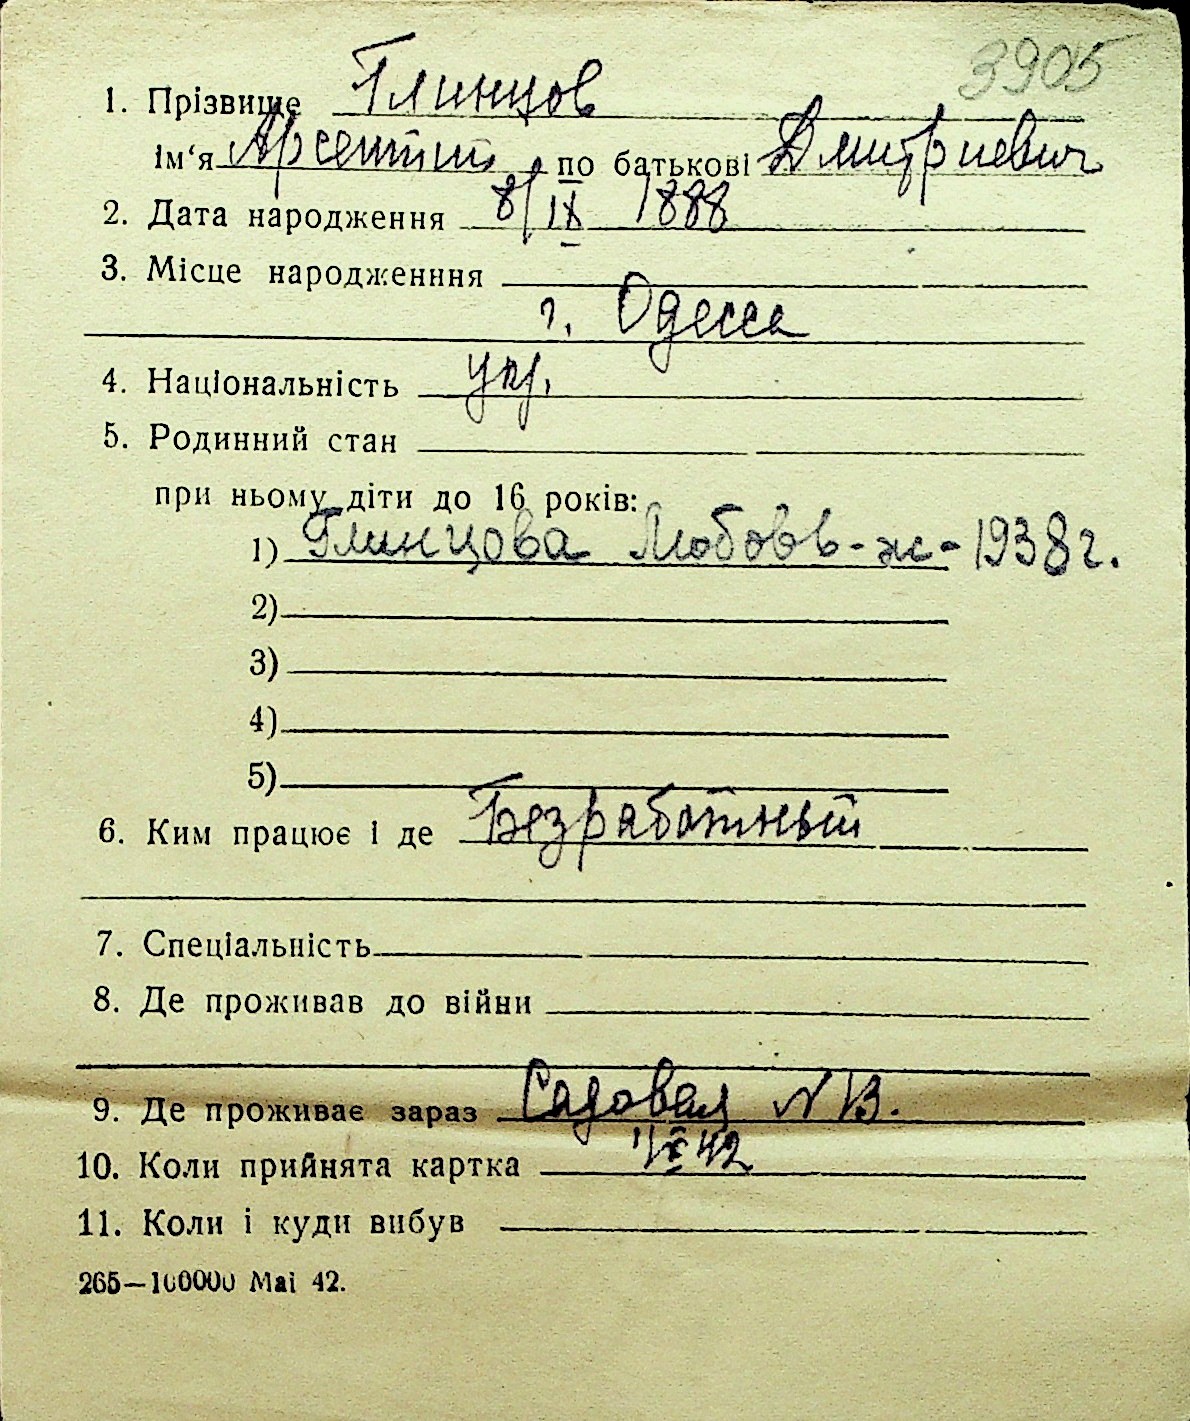 3905
1. Прізвище Глинцов
ім‘я Арсентий по батькові Дмитриевич
2. Дата народження 8/IX 1888
3. Місце народженння
г. Одесса
4. Національність укр.
5. Родинний стан
при ньому діти до 16 років:
1) Глинцова Любовь - ж - 1938 г.
2)
3)
4)
5)
6. Ким працює і де Безработный
7. Спеціальність
8. Де проживав до війни
9. Де проживає зараз Садовая N
10. Коли прийнята картка 42
11. Коли і куди вибув
265—100000 Mai 42.